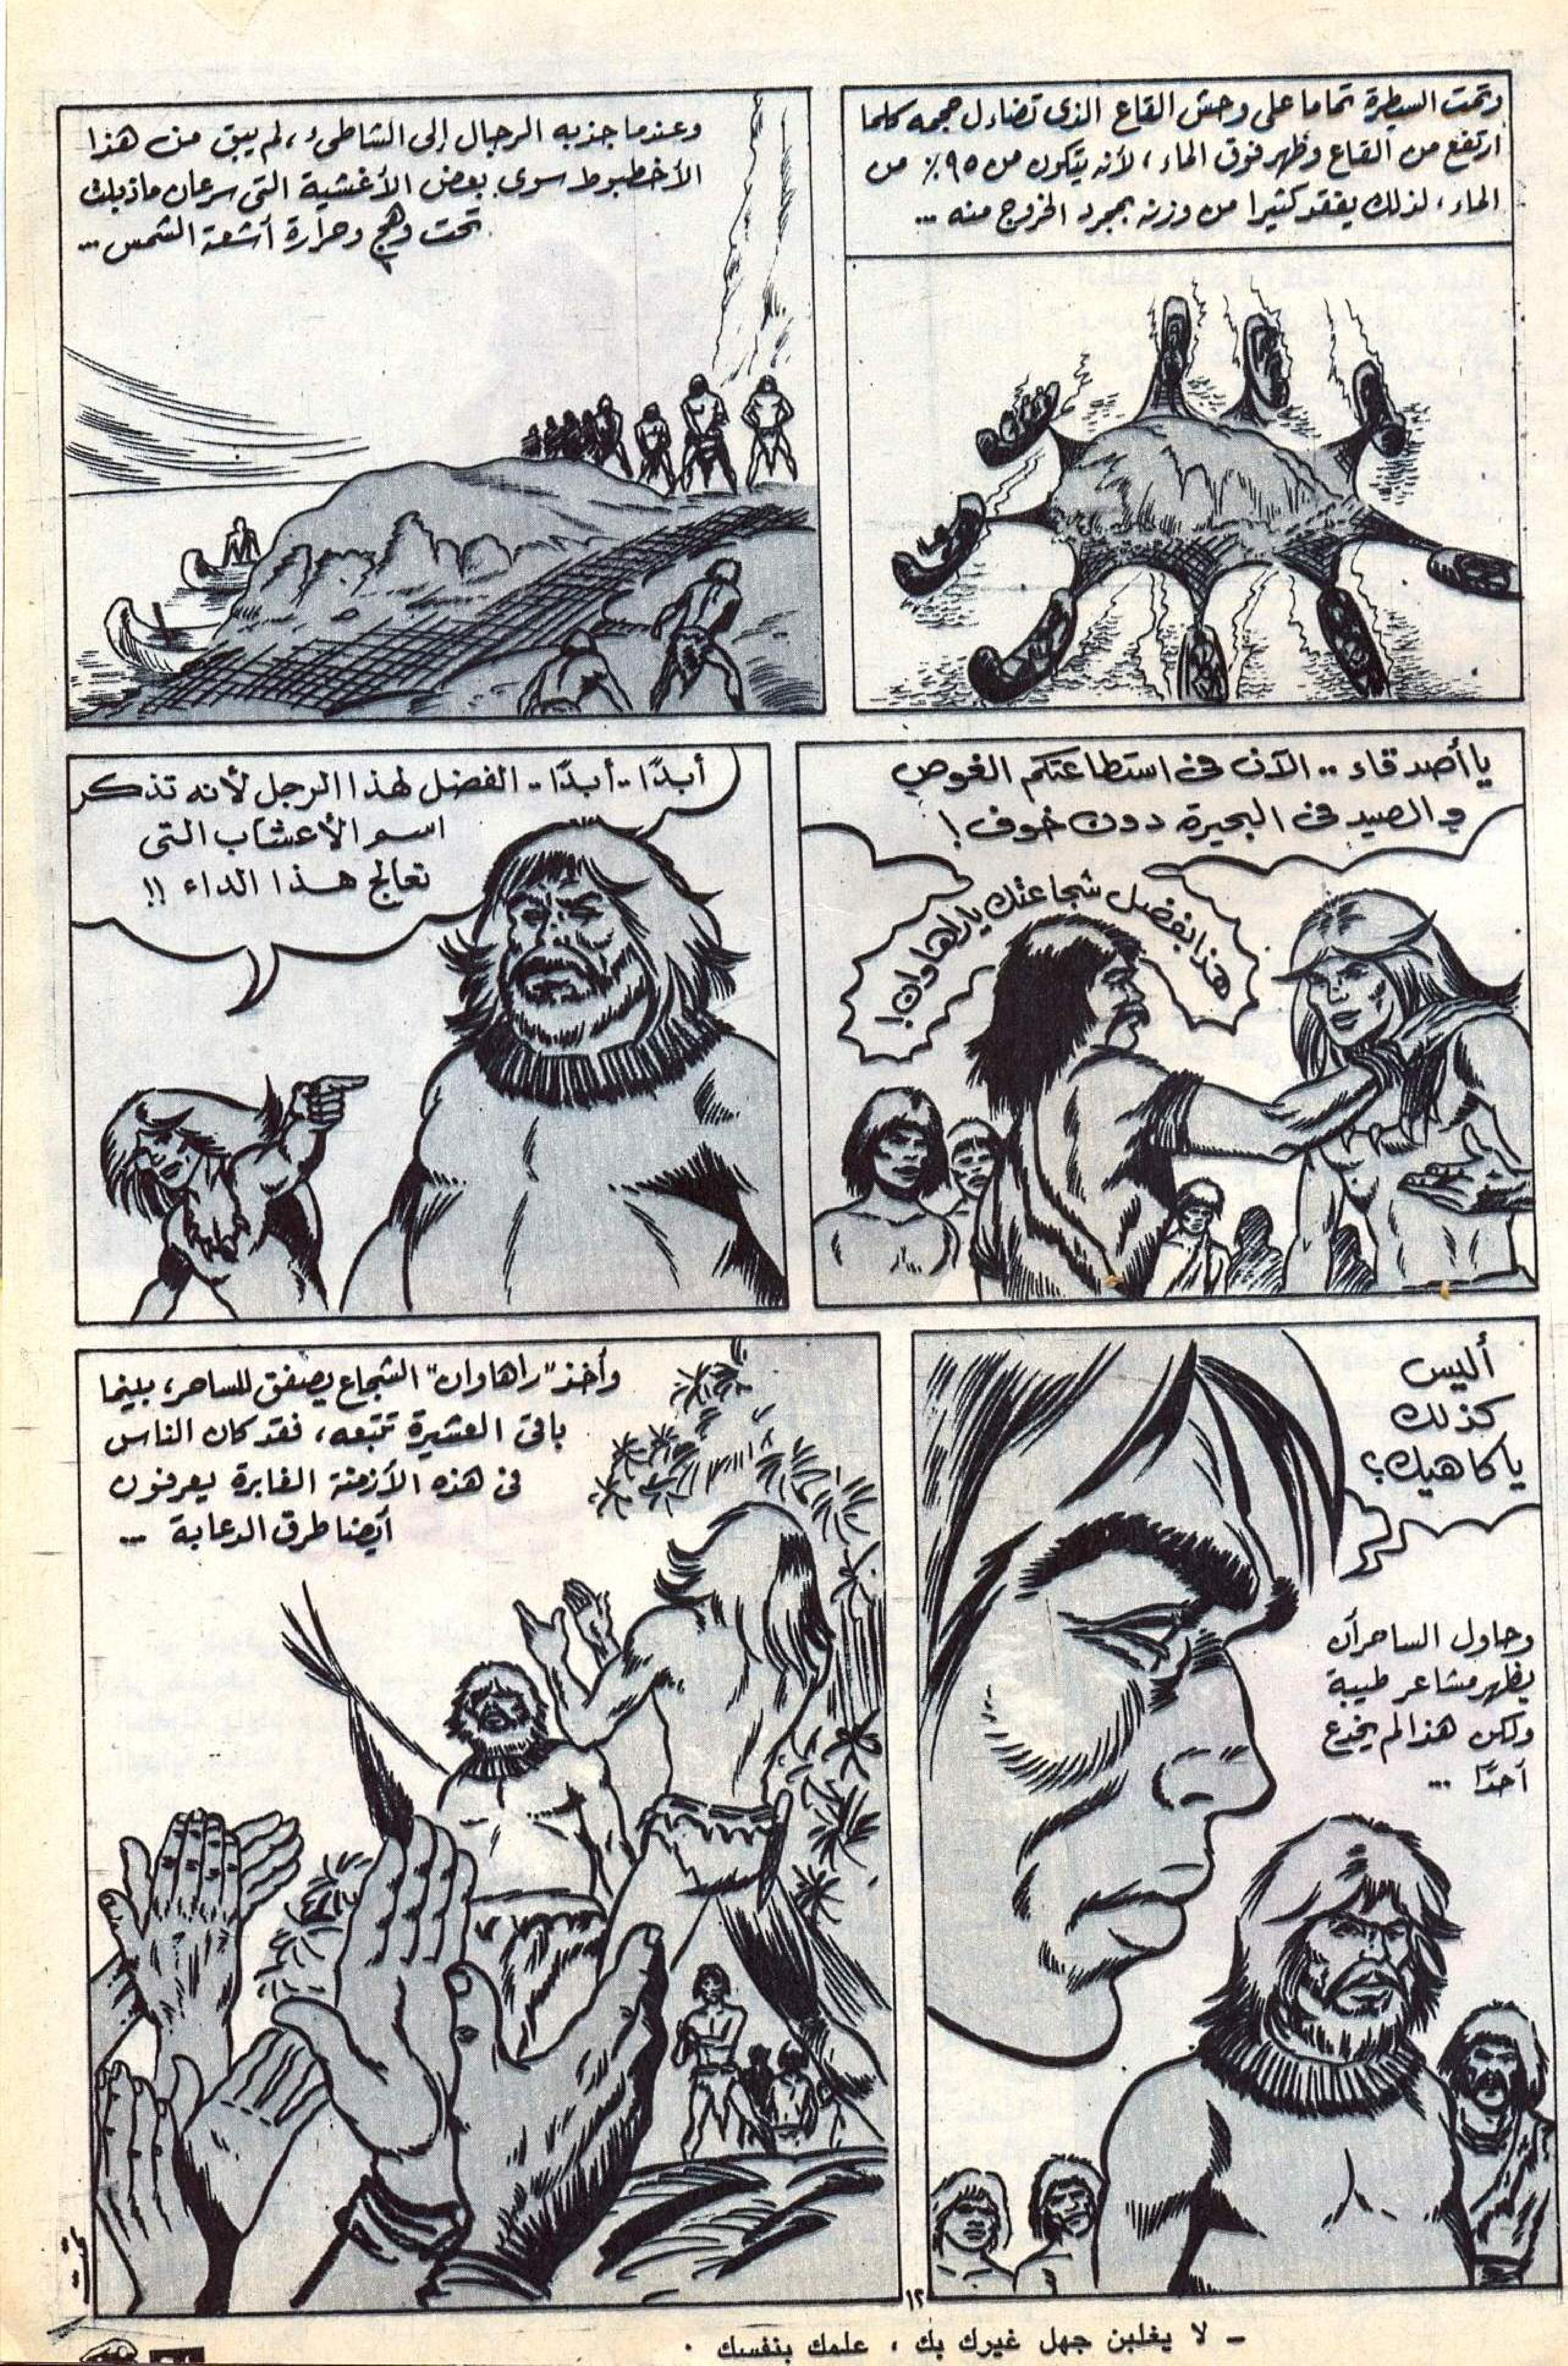 وتمت السيطرة تماما على وحش القاع الذى تضاءل حجمه كلما
ارتفع من القاع وظهر فوق الماء ، لأنه يتكون من ٩٥٪ من
الماء ، لذلك يفقد كثيرا من وزنه بمجرد الخروج منه ...
وعندما جذبه الرجال إلى الشاطىء ، لم يبق من هذا
الأخطبوط سوى بعض الأغشية التى سرعان ماذبلت
تحت وهج وحرارة أشعة الشمس ...
يا أصدقاء .. الآن فى استطاعتكم الغوص
والصيد فى البحيرة دون خوف !
هذا بفضل شجاعتك ياراهاوان !
أبدًا .. أبدًا .. الفضل لهذا الرجل لأنه تذكر
اسم الأعشاب التى
تعالج هذا الداء !!
أليس
كذلك
ياكاهيك ؟
وحاول الساحر أن
يظهر مشاعر طيبة
ولكن هذا لم يخدع
أحدًا ...
وأخذ "راهاوان" الشجاع يصفق للساحر ، بينما
باقى العشيرة تتبعه ، فقد كان الناس
فى هذه الأزمنة الغابرة يعرفون
أيضا طرق الدعابة ...
١٢
– لا يغلبن جهل غيرك بك ، علمك بنفسك .